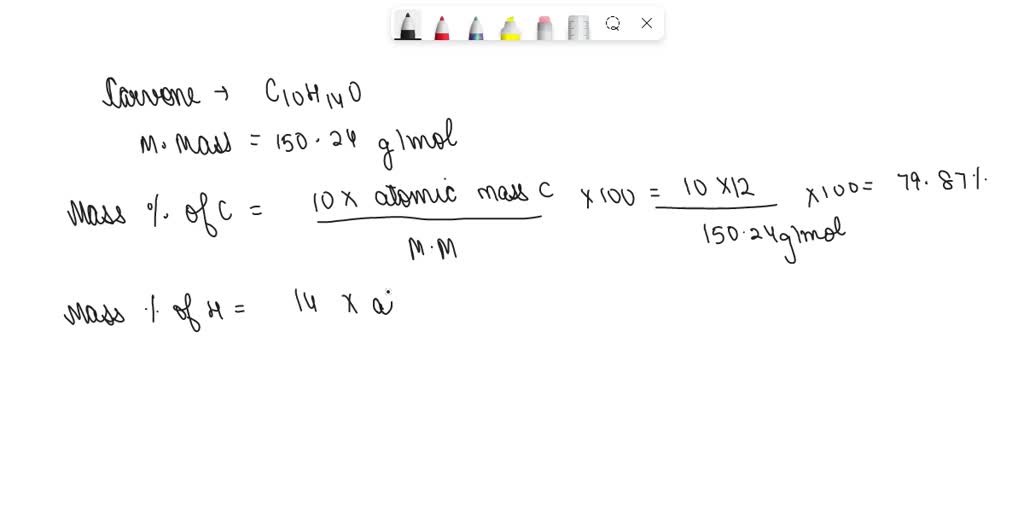 Carvone → C10H14O
M. Mass = 150.24 g/mol
Mass % of C = 10 x atomic mass C / M.M x 100 = 10 x 12 / 150.24 g/mol x 100 = 79.87%
Mass % of H = 14 x a